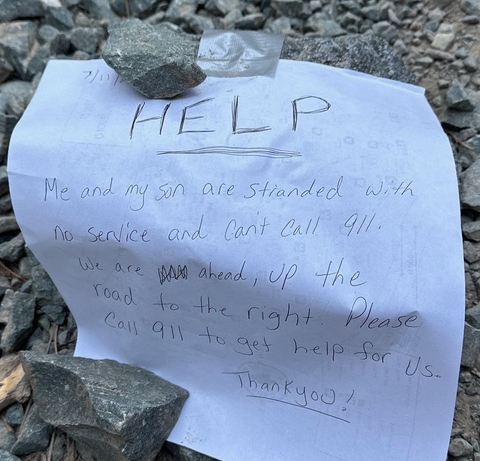 HELP
Me and my son are stranded with
no service and Can't Call 911.
We are ahead, up the
road to the right. Please
Call 911 to get help for us.
Thankyou!